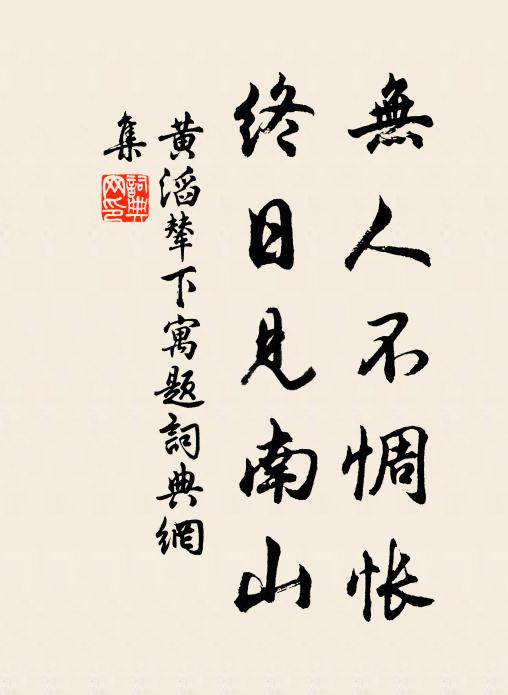 無人不惆悵
終日見南山
黄滔輦下寓題詞典網
集
詞典网印